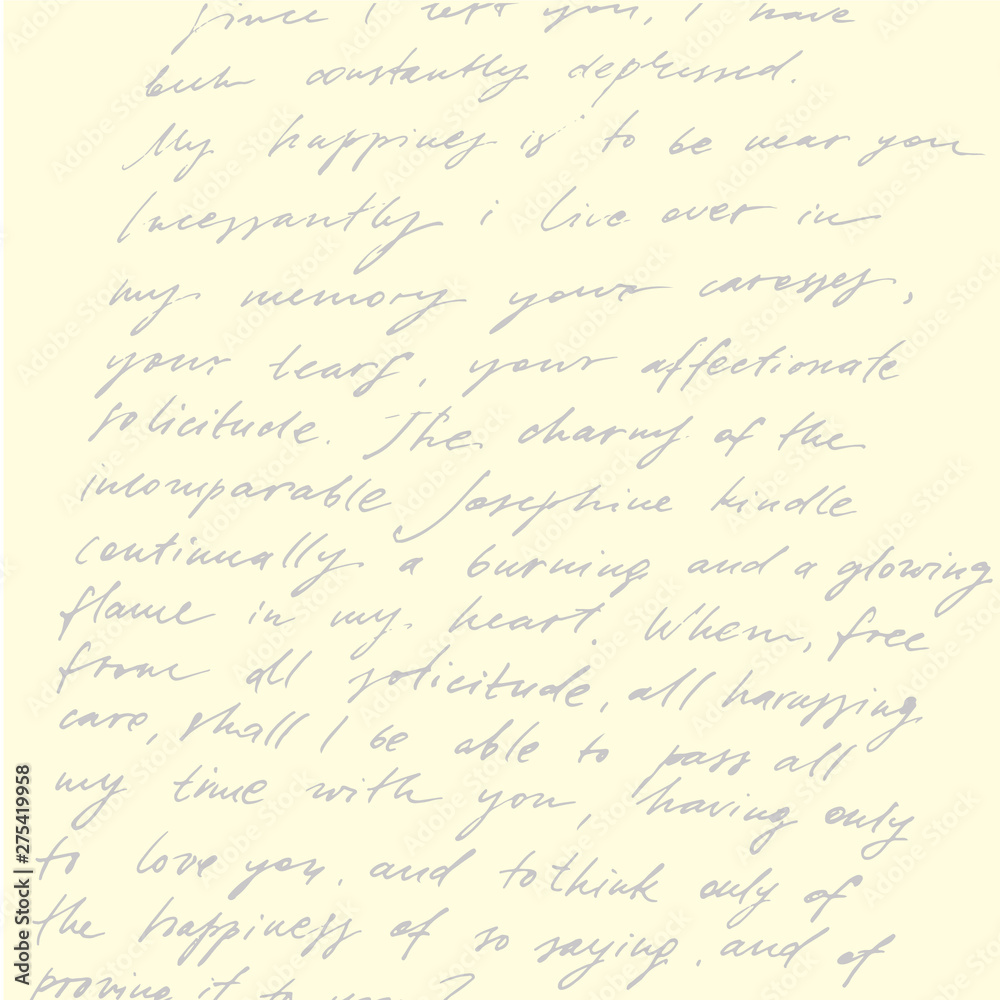 Since I left you, I have
been constantly depressed.
My happiness is to be near you
Incessantly i live over in
my memory your caresses,
your tears, your affectionate
solicitude. The charms of the
incomparable Josephine kindle
continually a burning and a glowing
flame in my heart. When, free
from all solicitude, all harassing
care, shall I be able to pass all
my time with you, having only
to love you, and to think only of
the happiness of so saying, and of
proving it to you?
Adobe Stock | #275419958